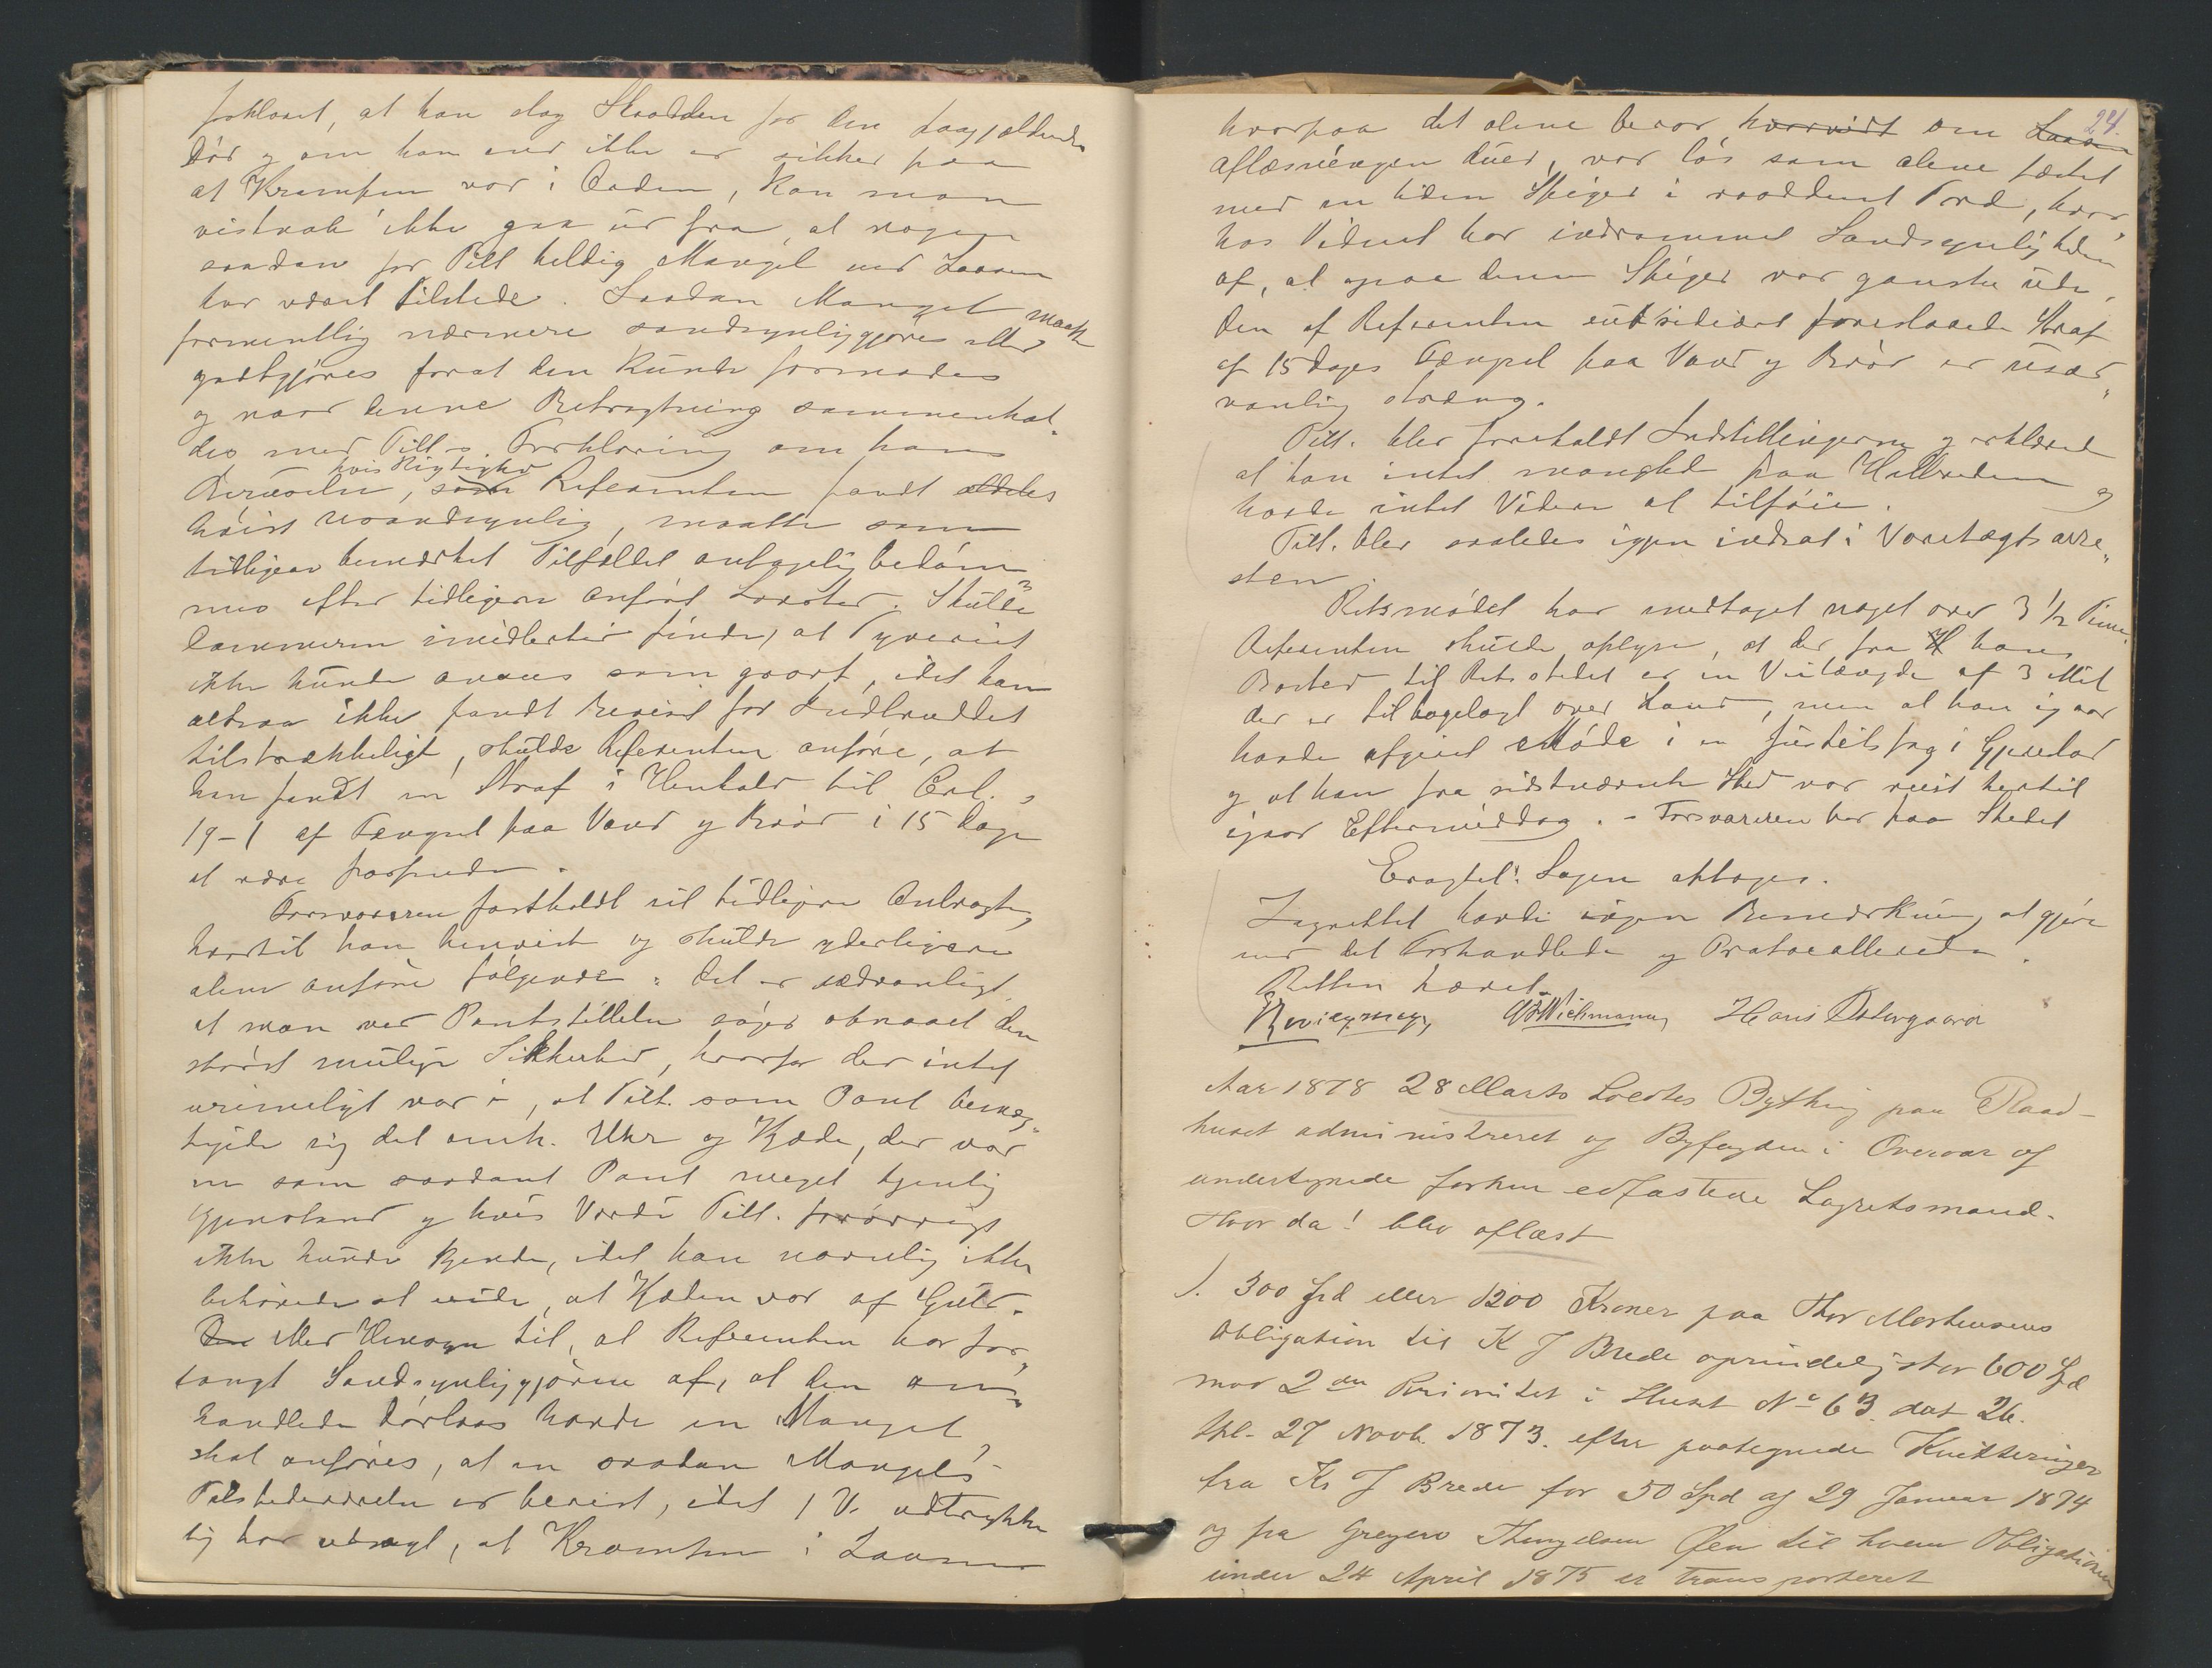 forklaret, at han slog Skodden for den paagjældende
Dör og om han end ikke er sikker paa
at Krampen var i Orden, kan man
vistnok ikke gaa ud fra, at nogen
saadan for Tilt heldig Mangel ved Laasen
har været tilstede. Saadan Mangel maatte
formentlig nærmere sandsynliggjöres eller
godtgjöres forat den kunde formodes
og naar denne Betragtning sammenhol-
des med Tilt-s. Forklaring om hans
Beruselse, hvis Rigtighed Referenten fandt aldeles
höist usandsynlig, maatte som
tidligere bemærket Tilfældet antagelig bedöm-
mes efter tidligere anfört Lovsted. Skulde
Dommeren imidlertid finde, at Tyveriet
ikke kunde ansees som grovt, idet han
altsaa ikke fandt Beviset for Indbruddet
tilstrækkeligt, skulde Referenten anföre, at
han fandt en Straf i Henhold til Crl.
19-1 af Fængsel paa Vand og Bröd i 15 Dage
at være passende.
Forsvareren fastholdt sit tidligere Andragende,
hvortil han henviste og skulde yderligere
alene anföre fölgende: det er sædvanligt
at man ved Pantstillelse söger opnaaet den
störst mulige Sikkerhed, hvorfor der intet
urimeligt var i, at Tilt. som Pant bemæg-
tigede sig det omh. Uhr og Kjæde, der var
en som saadant Pant meget tjenlig
Gjenstand og hvis Værdi Tilt. forövrigt
ikke kunde kjende, idet han navnlig ikke
behövede at vide, at Kjæden var af Guld.
Den Med Hensyn til, at Referenten har for-
langt Sandsynliggjörelse af, at den om-
handlede Dörlaas havde en Mangel
skal anföres, at en saadan Mangels
Tilstedeværelse er bevist, idet 1 V. udtrykke-
lig har udsagt, at Krampen i Laasen
24.
hvorpaa det alene beror, hvorvidt om Laasen
aflæsningen duer, var lös som alene fæstet
med en liden Spiger i raaddent Træ, hvor-
hos Vidnet har indrömmet Sandsynligheden
af, at ogsaa denne Spiger var ganske ude.
Den af Referenten subsidiært foreslaaede Straf
af 15 Dages Fængsel paa Vand og Bröd er usæd-
vanlig streng.
Tilt. blev foreholdt Indstillingerne og erklærede
at han intet manglede paa Helbreden og
havde intet Videre at tilföie.
Tilt. blev saaledes igjen indsat i Varetægtsarre-
sten.
Retsmödet har medtaget noget over 3 1/2 Time.
Referenten skulde oplyse, at der fra hans
Bosted til Retsstedet er en Veilængde af 3 Mil
der er tilbagelagt over Land, men at han igaar
havde afgivet Möde i en Justitssag i Gjerstad
og at han fra sidstnævnte Sted var reist hertil
igaar Eftermiddag. - Forsvareren bor paa Stedet
Eragtet: Sagen optages.
Lagrettet havde ingen Bemærkning at gjöre
ved det Forhandlede og Protocollerede.
Retten hævet.
Wichmann Hans Östergaard
Aar 1878 28 Marts holdtes Bything paa Raad-
huset administreret og Byfogden i Overvær af
undertegnede forhen edfæstede Lagretsmænd.
Hvor da! blev oplæst
1. 300 Spd eller 1200 Kroner paa Thor Mortensens
Obligation til K J Brede oprindelig stor 600 Spd
mod 2den Prioritet i Huset No 63. dat 26.
thl. 27 Novb. 1873. efter paategnede Kvitteringer
fra Kr J Brede for 50 Spd af 29 Januar 1874
og fra Gregers Thengelsen Öen til hvem Obligationen
under 24 April 1875 er transporteret